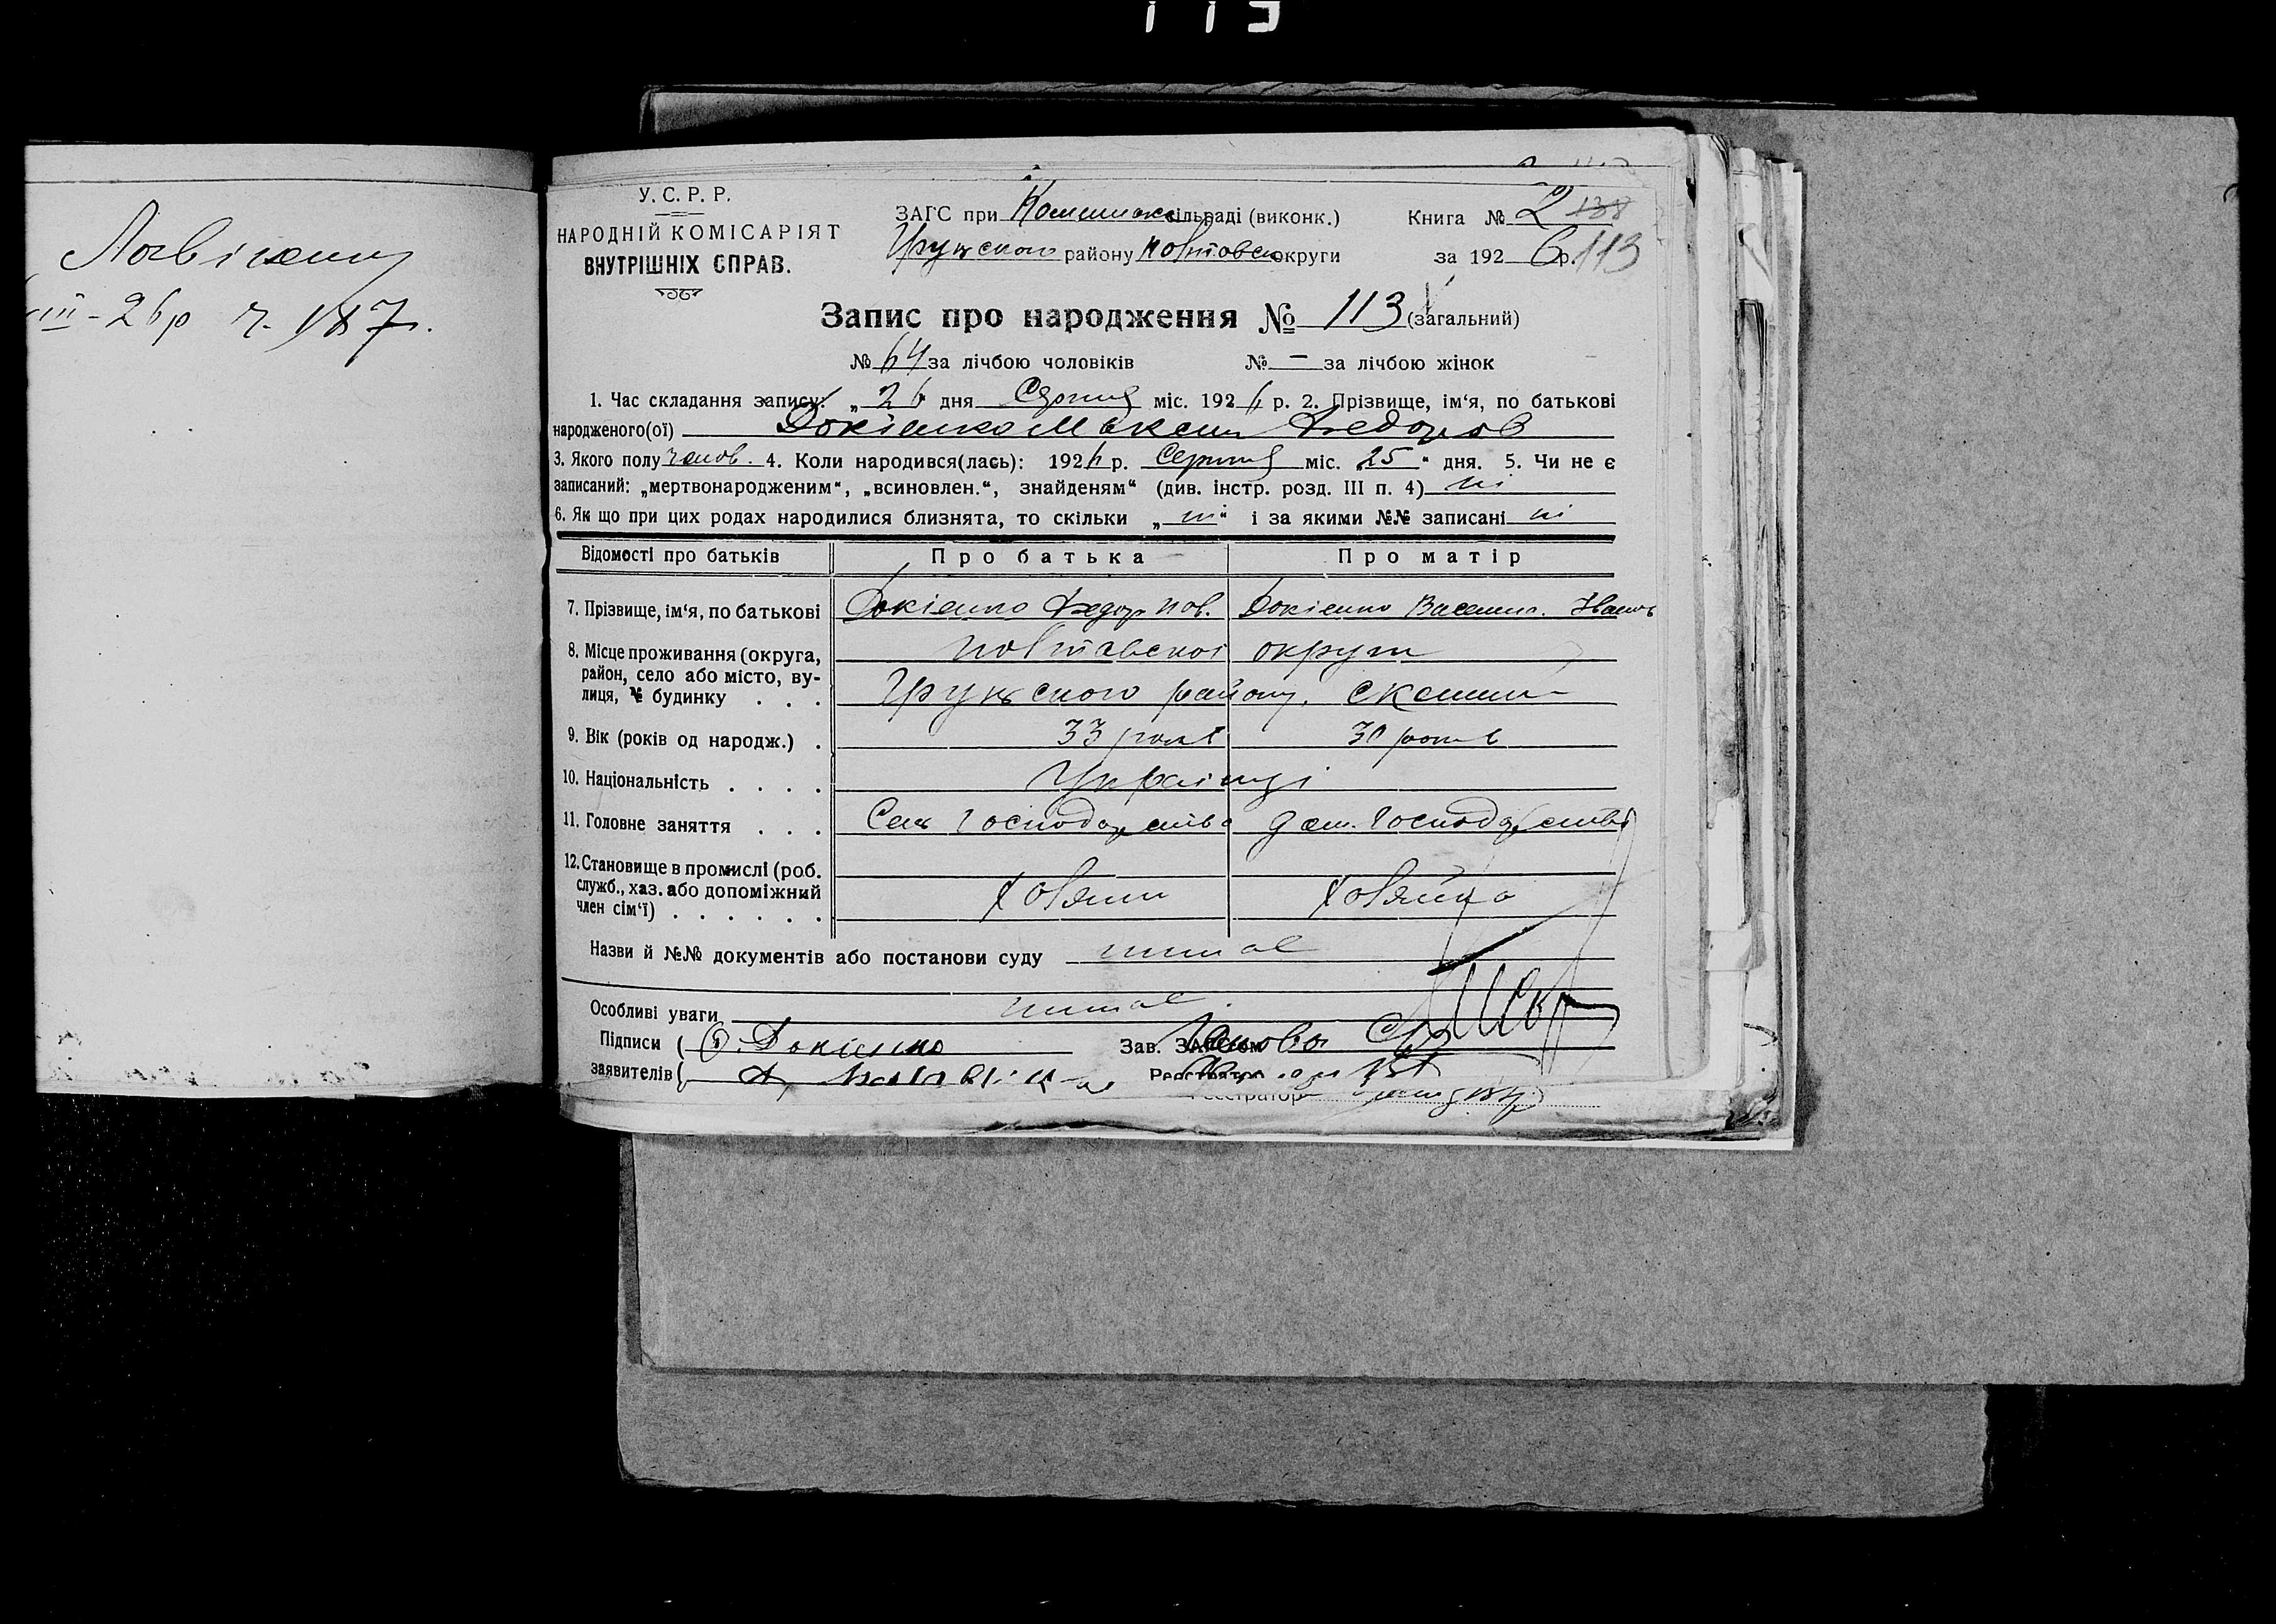 113
У. С. Р. Р.
НАРОДНІЙ КОМІСАРІЯТ
ВНУТРІШНІХ СПРАВ.
ЗАГС при сільраді (виконк.)
Грунського району Полтавськ округи
Книга № 2 138
за 1926 р. 113
Запис про народження № 113 (загальний)
№ 64 за лічбою чоловіків № — за лічбою жінок
1. Час складання запису: „26" дня Серпня міс. 1926 р. 2. Прізвище, ім'я, по батькові
народженого(ої) Докієнко Максим Федоров
3. Якого полу чолов. 4. Коли народився(лась): 1926 р. Серпня міс. „25" дня. 5. Чи не є
записаний: „мертвонародженим", „всиновлен.", знайденям" (див. інстр. розд. III п. 4) ні
6. Як що при цих родах народилися близнята, то скільки „ні" і за якими №№ записані ні
Відомості про батьків Про батька Про матір
7. Прізвище, ім'я, по батькові Докієнко Федор Докієнко Іванов
8. Місце проживання (округа, Полтавської округи
район, село або місто, ву- Грунського району,
лиця, № будинку . . .
9. Вік (років од народж.) . 33 років 30 років
10. Національність . . . . Українці
11. Головне заняття . . . Сель господарство дом. господарство
12. Становище в промислі (роб.
служб., хаз. або допоміжний Хозяин Хозяйка
член сім'ї) . . . . . .
Назви й №№ документів або постанови суду немає
Особливі уваги немає.
Підписи ( Докієнко Зав. ЗАГСом
заявителів (
Реєстратор
-26р ч. 187.